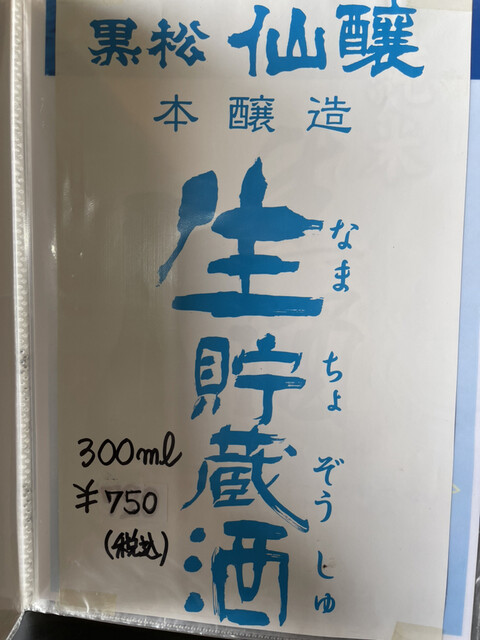 黒松 仙醸
本醸造
生貯蔵酒
なま ちょ ぞう しゅ
300ml
¥750
(税込)